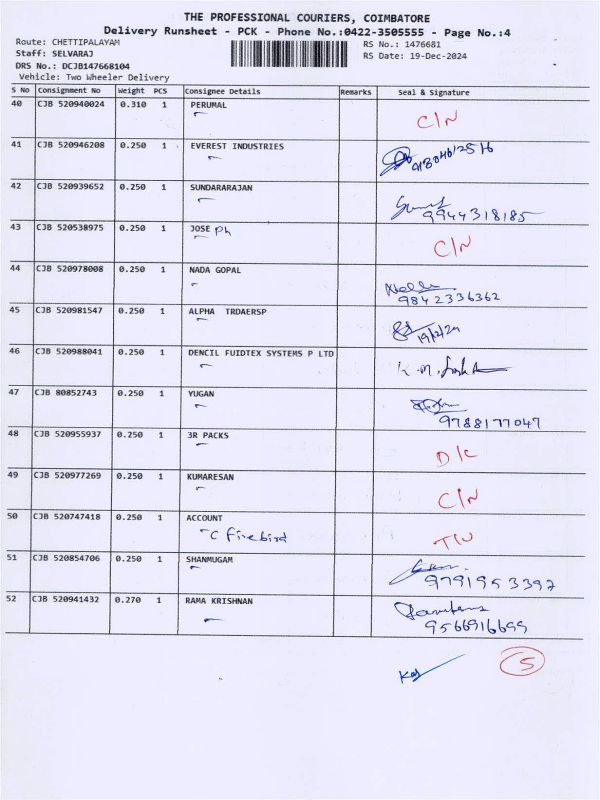 THE PROFESSIONAL COURIERS, COIMBATORE
Delivery Runsheet - PCK - Phone No.:0422-3505555 - Page No.:4
Route: CHETTIPALAYAM
Staff: SELVARAJ
DRS No.: DCJB147668104
Vehicle: Two Wheeler Delivery
RS No.: 1476681
RS Date: 19-Dec-2024
S No Consignment No Weight PCS Consignee Details Remarks Seal & Signature
40 CJB 520940024 0.310 1 PERUMAL C/N
41 CJB 520946208 0.250 1 EVEREST INDUSTRIES
42 CJB 520939652 0.250 1 SUNDARARAJAN 9944318185
43 CJB 520538975 0.250 1 JOSE Ph C/N
44 CJB 520978008 0.250 1 NADA GOPAL 9842336362
45 CJB 520981547 0.250 1 ALPHA TRDAERSP
46 CJB 520988041 0.250 1 DENCIL FUIDTEX SYSTEMS P LTD
47 CJB 80852743 0.250 1 YUGAN 9788177047
48 CJB 520955937 0.250 1 3R PACKS D/C
49 CJB 520977269 0.250 1 KUMARESAN C/N
50 CJB 520747418 0.250 1 ACCOUNT
C Firebird
51 CJB 520854706 0.250 1 SHANMUGAM 9791953397
52 CJB 520941432 0.270 1 RAMA KRISHNAN 9566916699
5